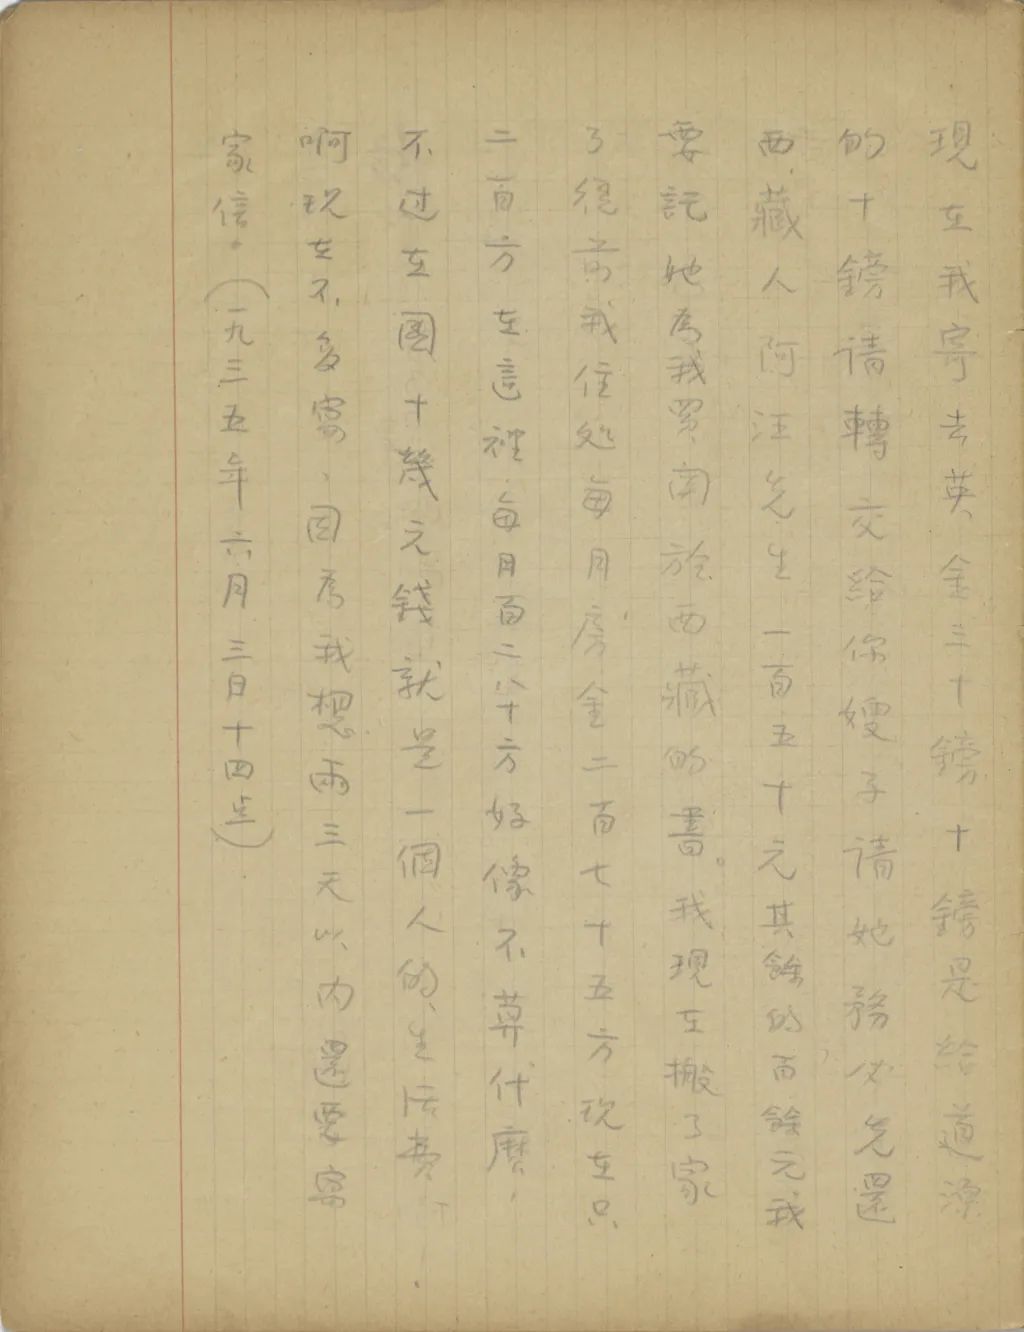 現在我寄去英金三十鎊十鎊是給道源
的十鎊请轉交給你嫂子请她務必先還
西藏人阿汪先生一百五十元其餘的百餘元我
要託她爲我買関於西藏的書。我現在搬了家
了從前我住処每月房金二百七十五方現在只
二百方在這裡每月百二八十方好像不算什麽,
不过在國十幾元錢就是一個人的生活費
啊现在不多寫,因爲我想兩三天以内還要寫
家信。(一九三五年六月三日十四点)